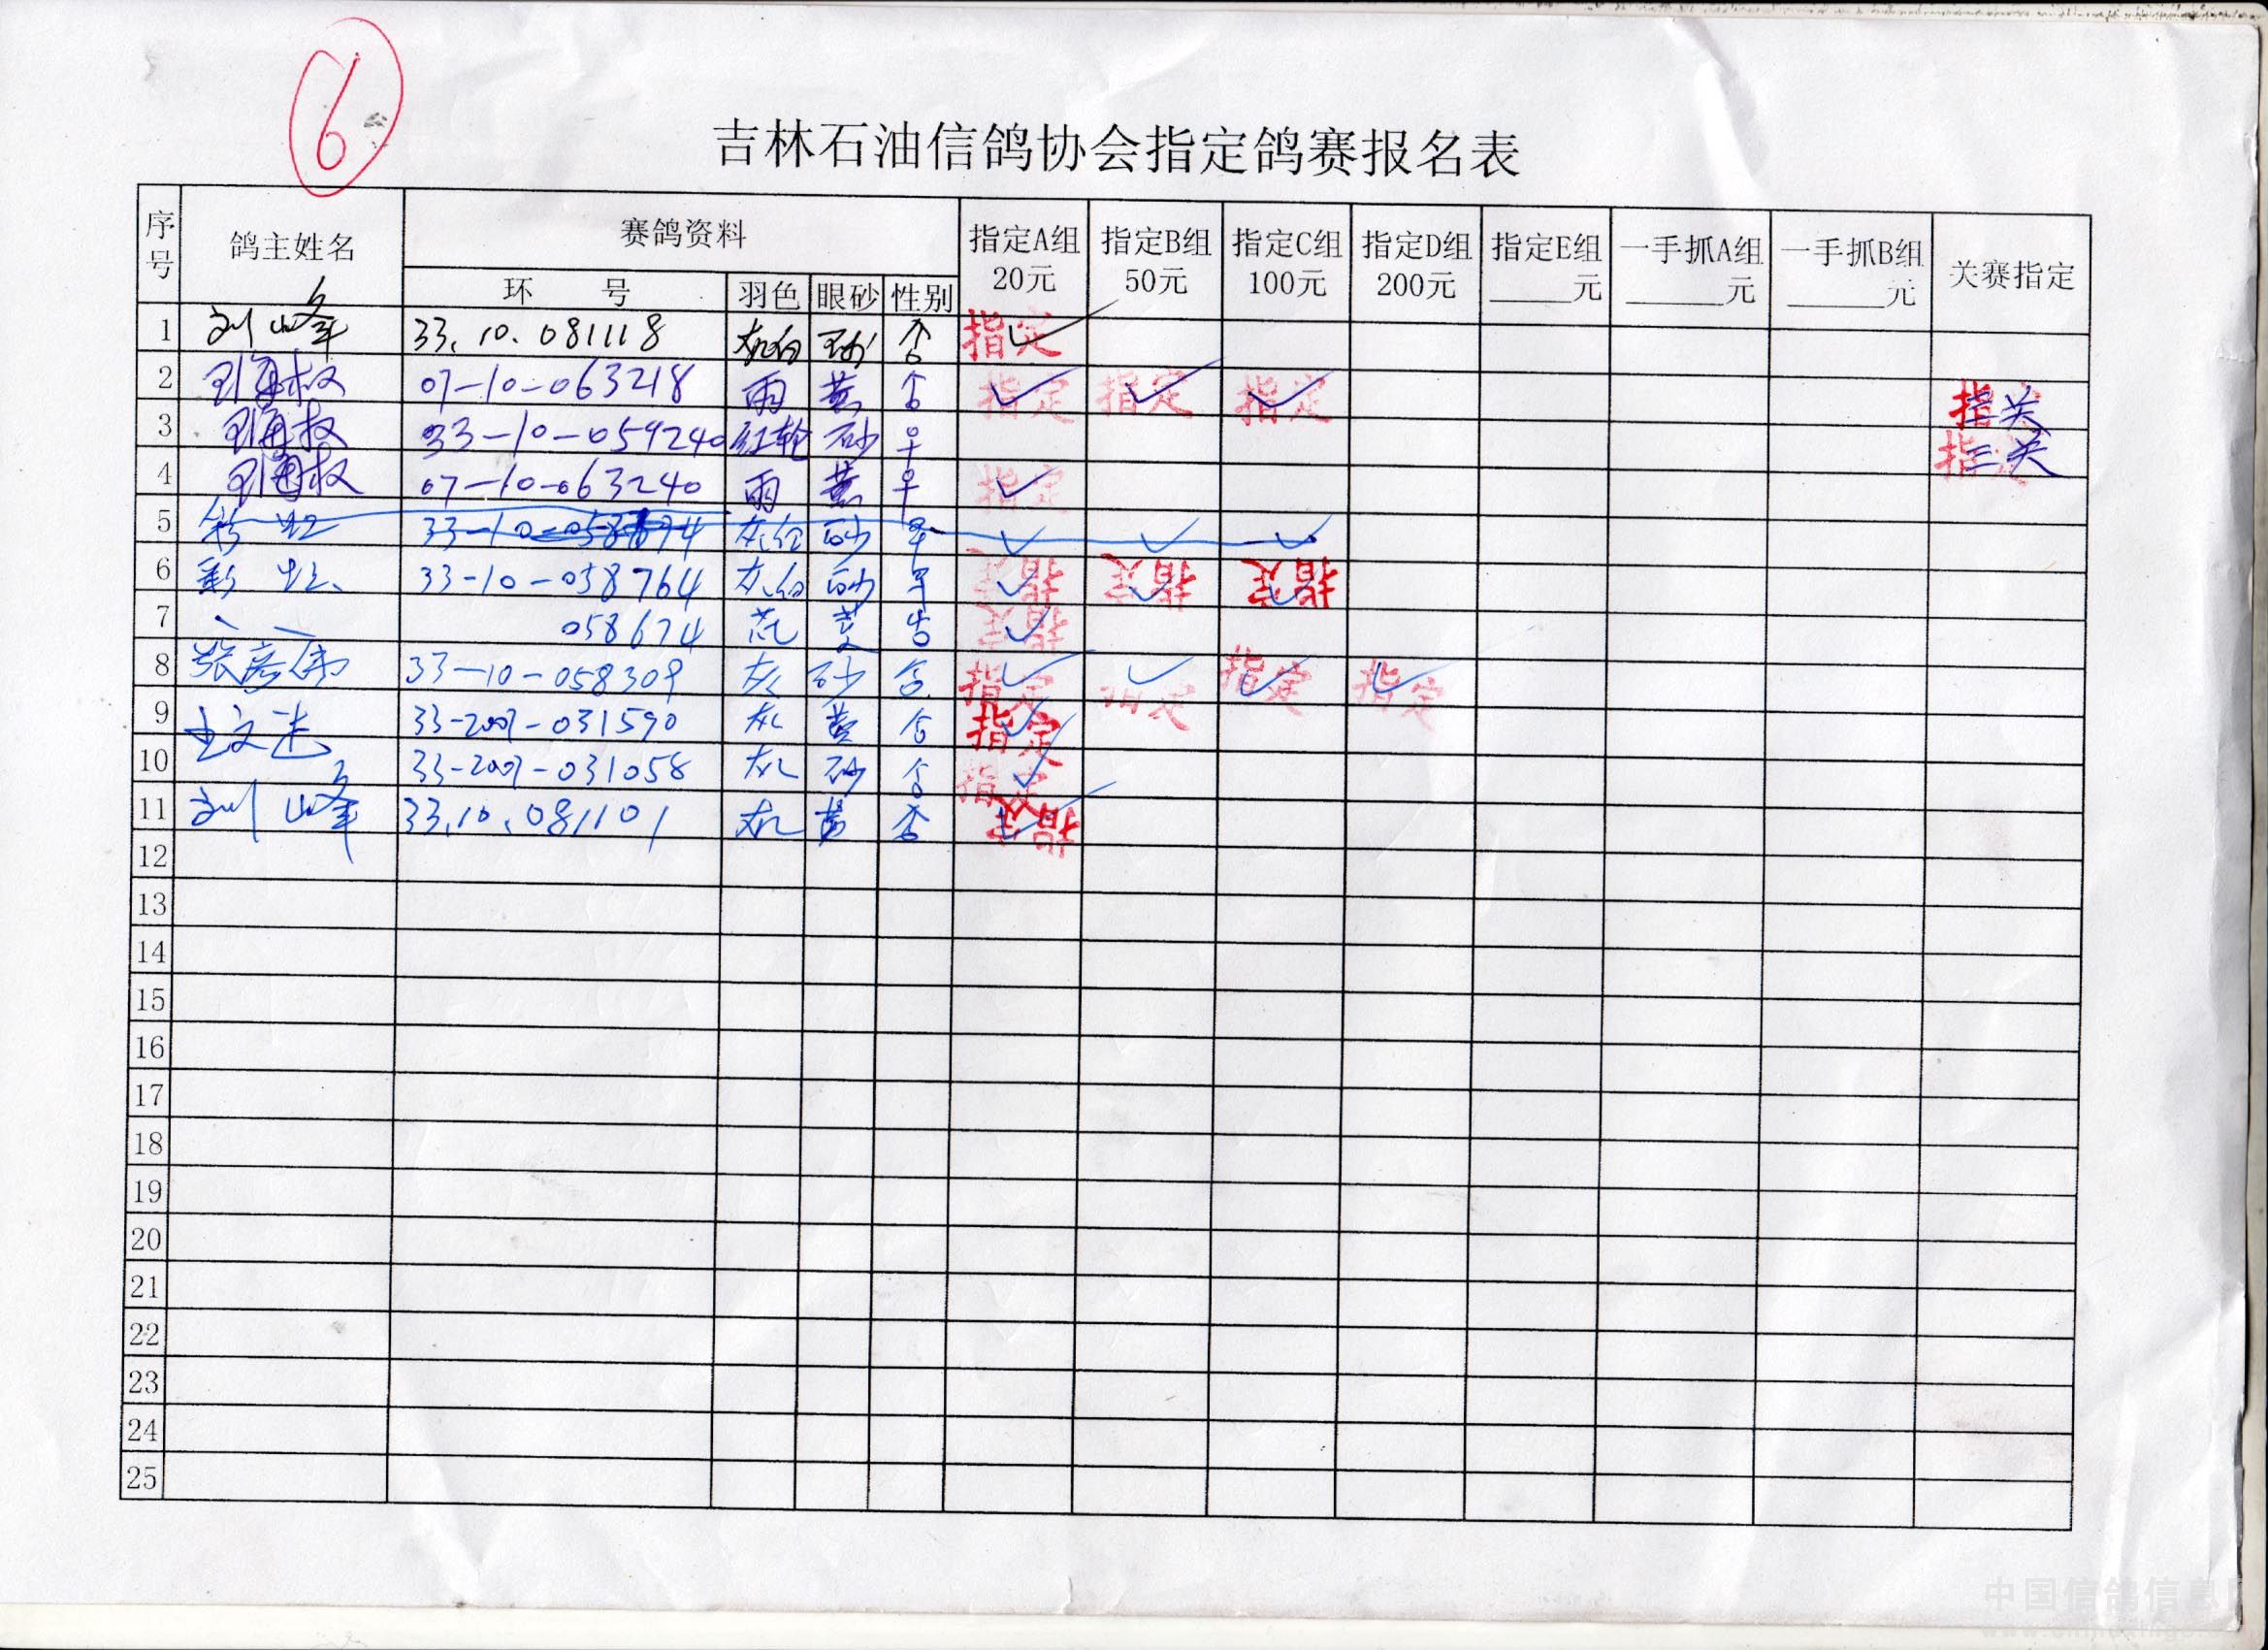 6
吉林石油信鸽协会指定鸽赛报名表
序号 鸽主姓名 赛鸽资料 指定A组 20元 指定B组 50元 指定C组 100元 指定D组 200元 指定E组 ____元 一手抓A组 ____元 一手抓B组 ____元 关赛指定
环 号 羽色 眼砂 性别
1 刘峰 33.10.081118 砂 指定 ✓
2 07-10-063218 雨 黄 指定 ✓ 指定 ✓ 指定 ✓ 指 关
3 33-10-059240 红轮 砂 ♀ 指 三关
4 07-10-063240 雨 黄 ♀ 指定 ✓
5 砂 ✓ ✓ ✓
6 33-10-058764 砂 指定 ✓ 指定 ✓ 指定 ✓
7 058674 指定 ✓
8 张彦 33-10-058309 灰 砂 指定 ✓ 指定 ✓ 指定 ✓ 指定 ✓
9 王文 33-2007-031590 灰 黄 指定 ✓
10 33-2007-031058 灰 砂 指定 ✓
11 刘峰 33.10.081101 灰 黄 指定 ✓
12
13
14
15
16
17
18
19
20
21
22
23
24
25
中国信鸽信息